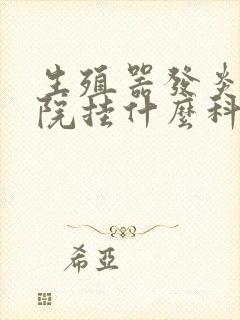 生殖器發炎
院挂什麼科
希亞